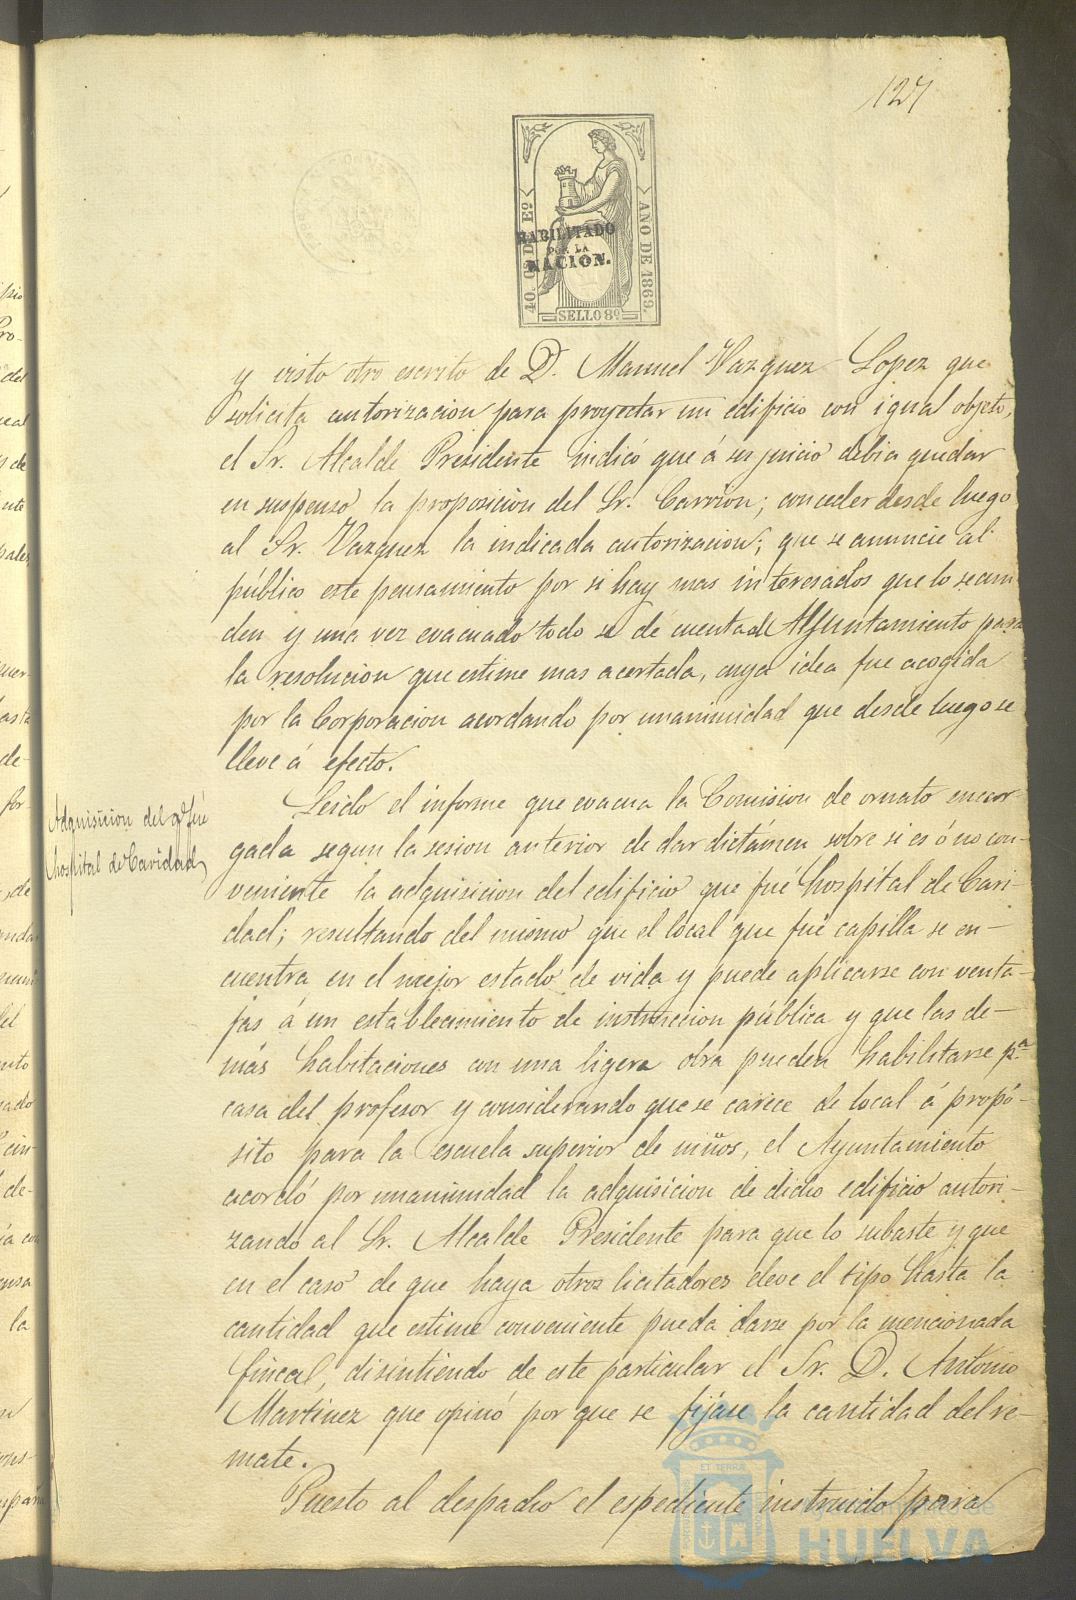 127
40. Cs DE Eo
AÑO DE 1869.
HABILITADO
POR LA
NACION.
SELLO 8º
y visto otro escrito de D. Manuel Vazquez Lopez que
solicita autorizacion para proyectar un edificio con igual objeto,
el Sr. Alcalde Presidente indicó que á su juicio debia quedar
en suspenso la proposicion del Sr. Carrion; conceder desde luego
al Sr. Vazquez la indicada autorizacion; que se anuncie al
público este pensamiento por si hay mas interesados que lo secun
den y una vez evacuado todo se dé cuenta al Ayuntamiento para
la resolucion que estime mas acertada, cuya idea fue acogida
por la Corporacion acordando por unanimidad que desde luego se
lleve á efecto.
Adquisicion del qe fué
hospital de Caridad
Leido el informe que evacua la Comision de ornato encar-
gada segun la sesion anterior de dar dictámen sobre si es ó no con-
veniente la adquisicion del edificio que fué hospital de Cari-
dad; resultando del mismo que el local que fué capilla se en-
cuentra en el mejor estado de vida y puede aplicarse con venta-
jas á un establecimiento de instruccion pública y que las de-
más habitaciones con una ligera obra pueden habilitarse pa
casa del profesor y considerando que se carece de local á propó-
sito para la escuela superior de niños, el Ayuntamiento
acordó por unanimidad la adquisicion de dicho edificio autori-
zando al Sr. Alcalde Presidente para que lo subaste y que
en el caso de que haya otros licitadores eleve el tipo hasta la
cantidad que estime conveniente pueda darse por la mencionada
finca, disintiendo de este particular el Sr. D. Antonio
Martinez que opinó por que se fijase la cantidad del re-
mate.
Puesto al despacho el espediente instruido para
ET TERRÆ
Ayuntamiento de
HUELVA